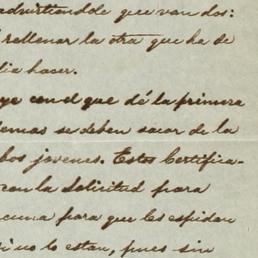 advirtiendole que van dos:
rellenar la otra que ha de
hacer.
con el que dé la primera
demas se deben sacar de la
bos jovenes. Estos Certifica-
con la Solicitud para
cuma para que les espidan
no lo estan, pues sin